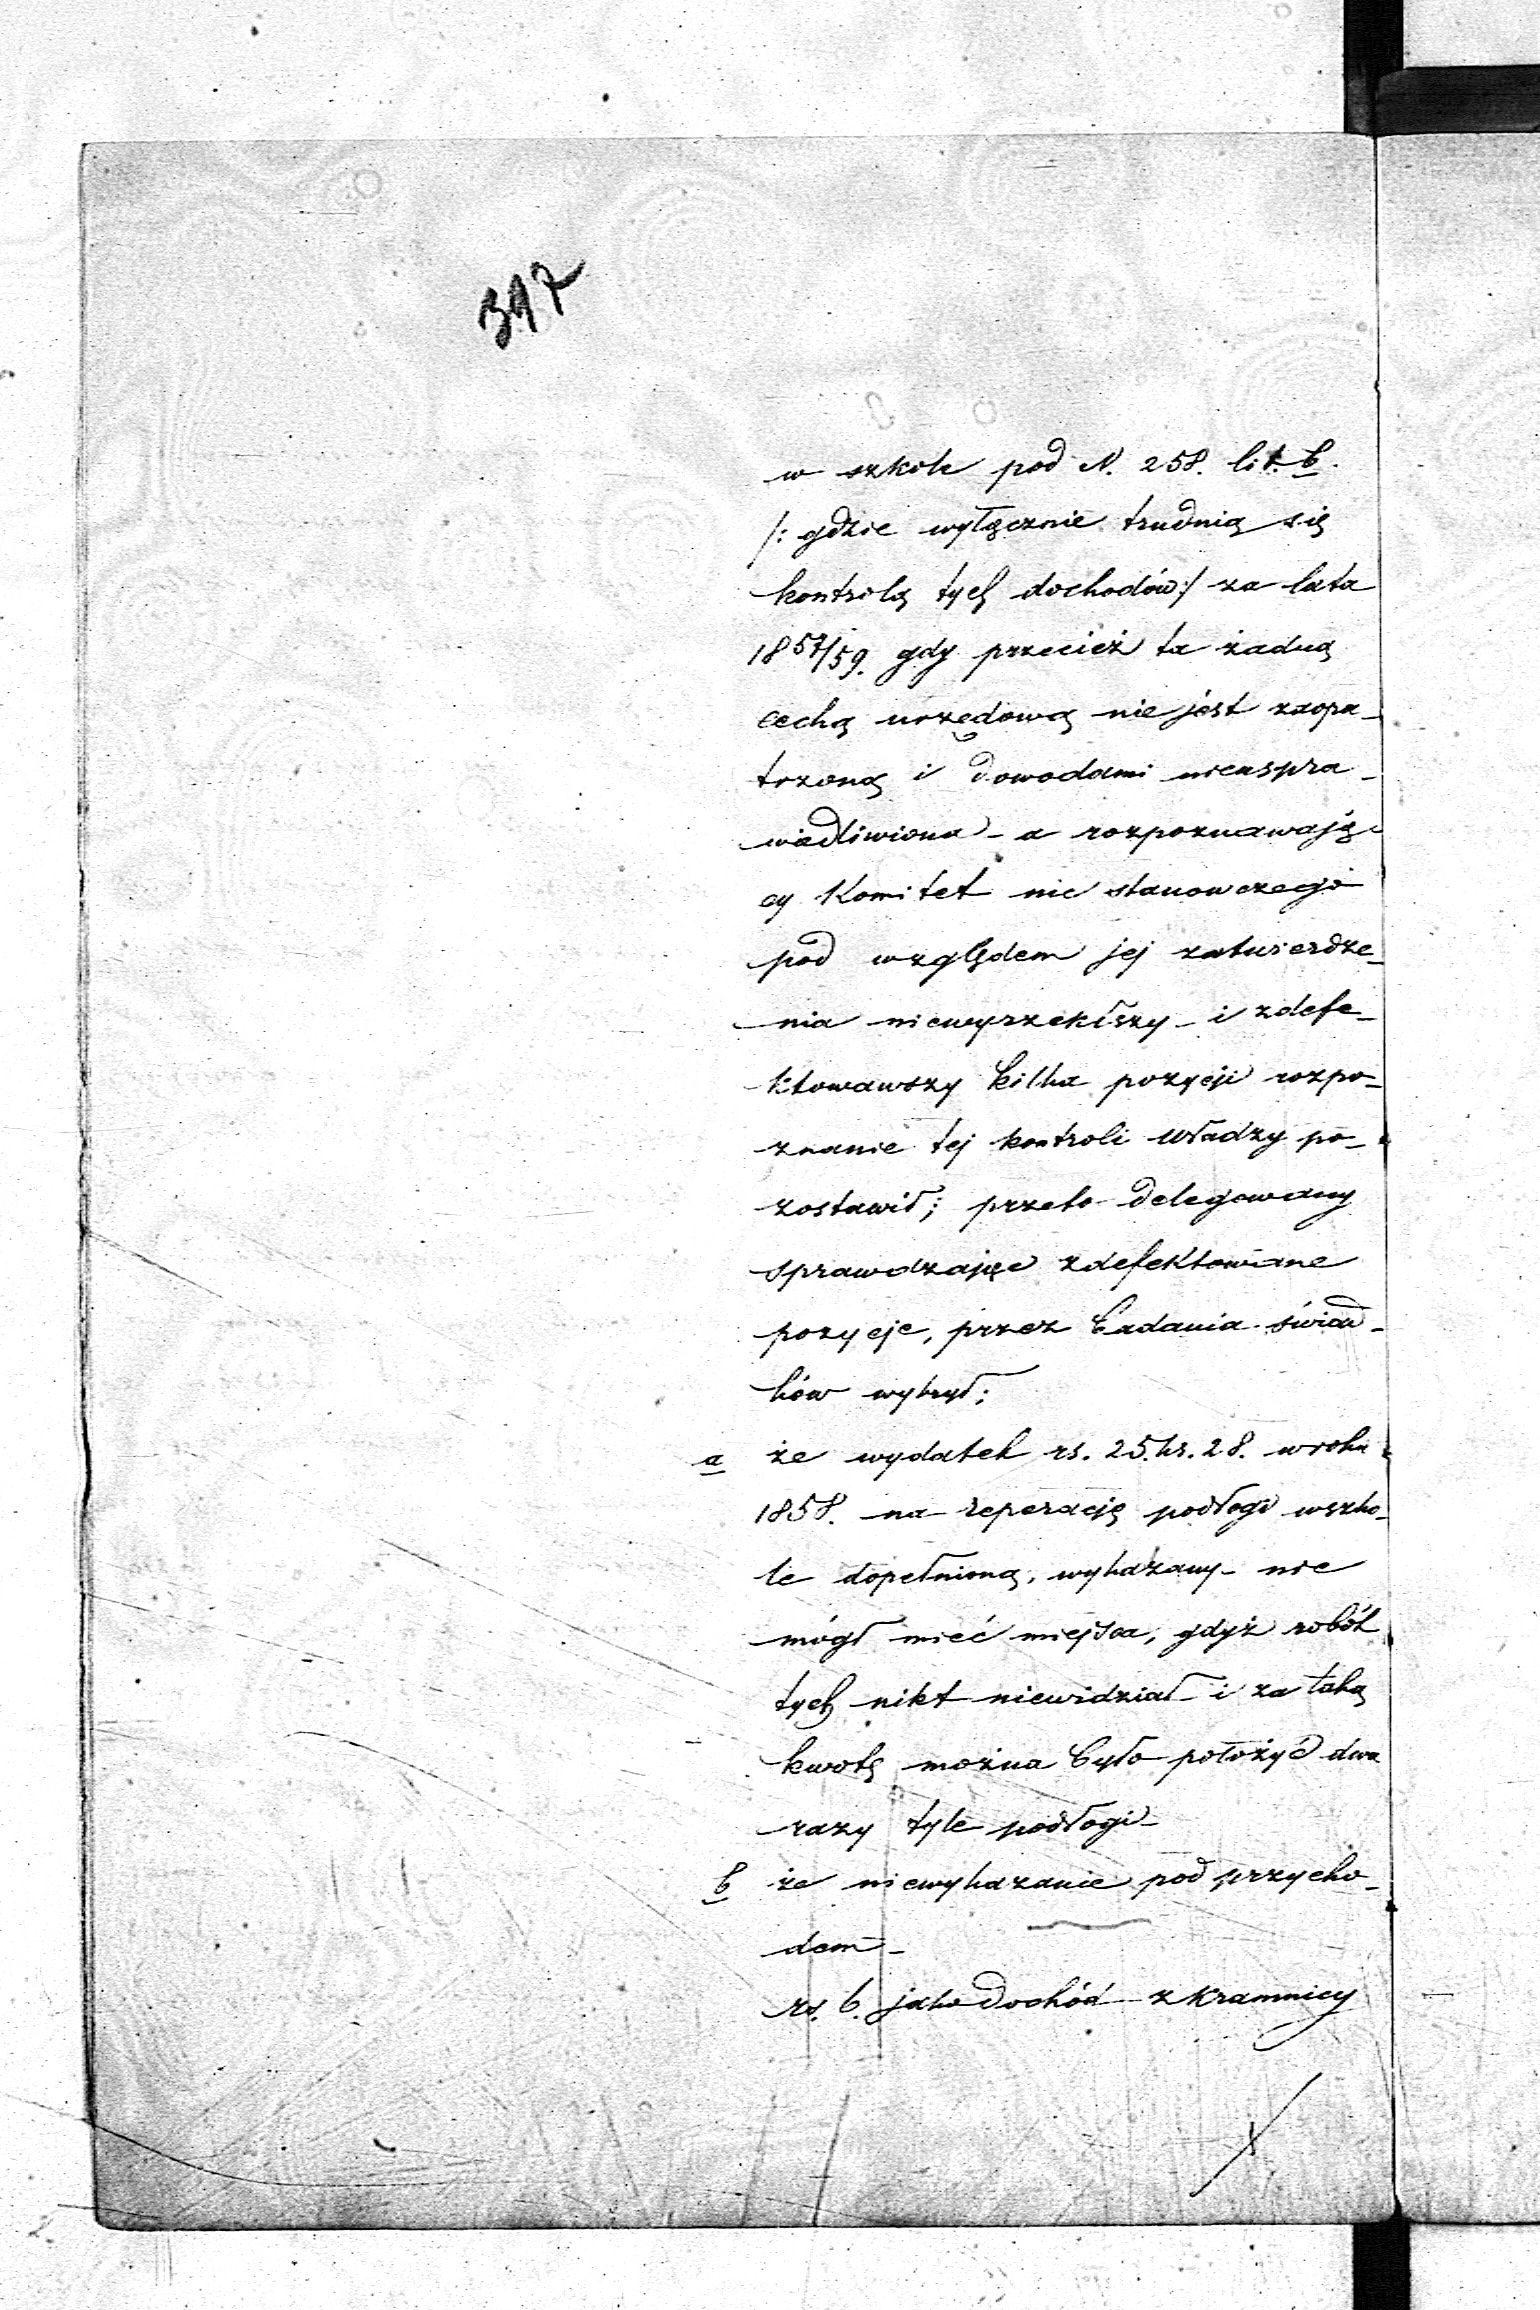 317
w szkole pod N. 258. lit. b.
/: gdzie wyłącznie trudnią się
kontrolą tych dochodów :/ za lata
1857/59. gdy przecież ta żadną
cechą urzędową nie jest zaopa_
trzoną i dowodami nieuspra_
wiedliwiona - a rozpoznawają_
cy Komitet nic stanowczego
pod względem jej zatwierdze_
nia niewyrzekłszy - i zdefe_
ktowawszy kilka pozycji rozpo_
znanie tej kontroli władzy po_
zostawił; przeto delegowany
sprawdzając zdefektowane
pozycje, przez badania świad_
ków wykrył;
a że wydatek rs. 25. ks. 28. w roku
1858. na reperację podłogi w szko_
le dopełnioną, wykazany - nie
mógł mieć miejsca, gdyż robót
tych nikt niewidział - i za taką
kwotę można było położyć dwa
razy tyle podłogi -
b że niewykazanie pod przycho_
dem -
rs. 6. jako dochód z kramnicy